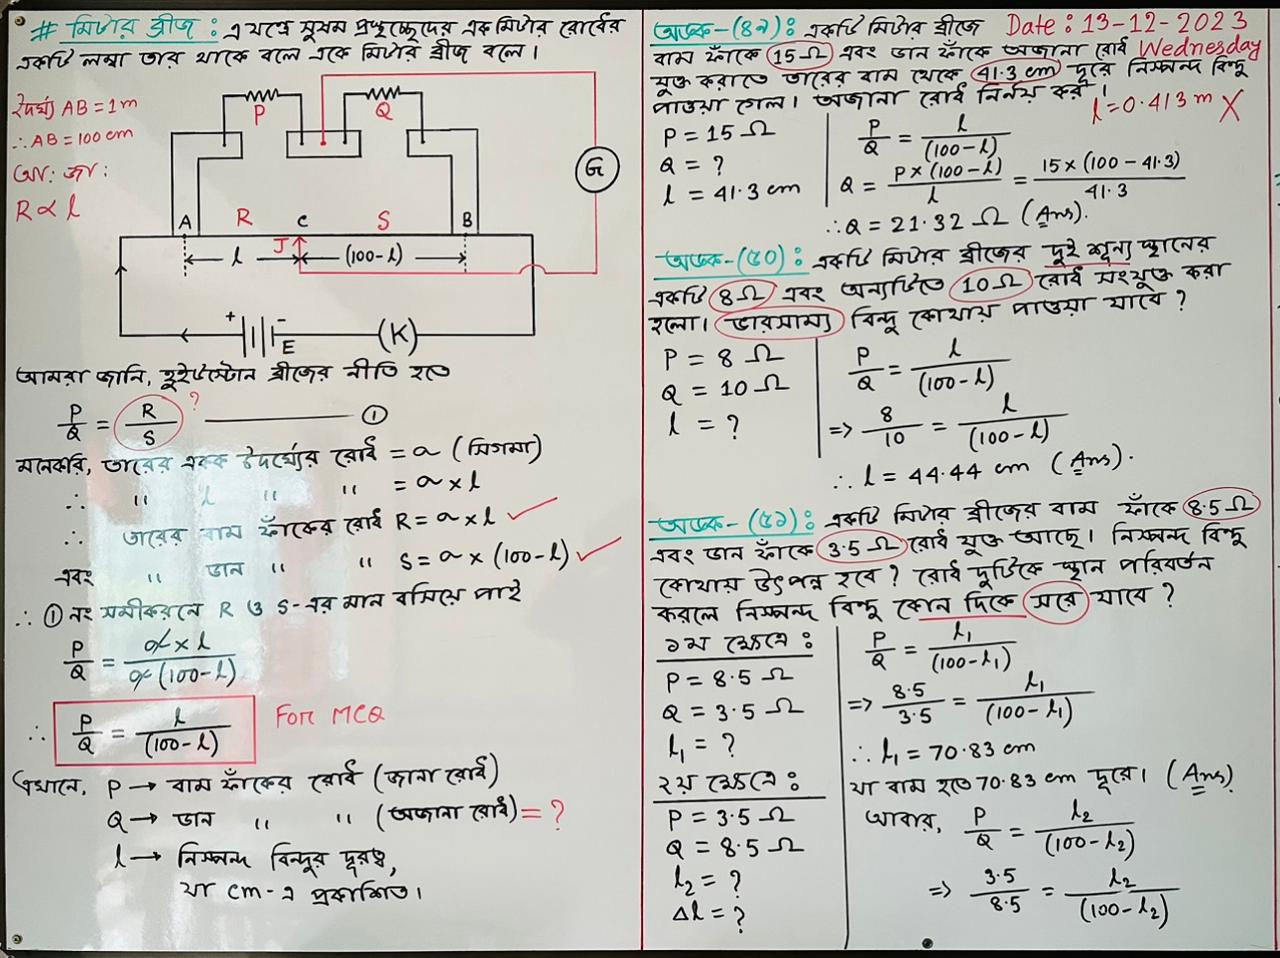 # মিটার ব্রীজ : এ যন্ত্রে সুষম প্রস্থচ্ছেদের এক মিটার রোধের
একটি লম্বা তার থাকে বলে একে মিটার ব্রীজ বলে।
দৈর্ঘ্য AB = 1m
∴ AB = 100 cm
আঃ জাঃ
R ∝ l
P
Q
G
A
R
C
S
B
J
l
(100-l)
+
-
E
(K)
আমরা জানি, হুইটস্টোন ব্রীজের নীতি হতে
P/Q = R/S ? ——— ①
মনেকরি, তারের একক দৈর্ঘ্যের রোধ = σ (সিগমা)
∴ " l " " = σ × l
∴ তারের বাম ফাঁকের রোধ R = σ × l ✓
এবং " ডান " " S = σ × (100-l) ✓
∴ ① নং সমীকরনে R ও S-এর মান বসিয়ে পাই
P/Q = σ × l / σ (100-l)
∴ P/Q = l/(100-l) For MCQ
এখানে, P → বাম ফাঁকের রোধ (জানা রোধ)
Q → ডান " " (অজানা রোধ) = ?
l → নিস্পন্দ বিন্দুর দূরত্ব,
যা cm-এ প্রকাশিত।
অঙ্ক-(৪৯) : একটি মিটার ব্রীজে Date : 13-12-2023
বাম ফাঁকে 15 Ω এবং ডান ফাঁকে অজানা রোধ Wednesday
যুক্ত করাতে তারের বাম থেকে 41.3 cm দূরে নিস্পন্দ বিন্দু
পাওয়া গেল। অজানা রোধ নির্নয় কর।
l = 0.413 m X
P = 15 Ω
Q = ?
l = 41.3 cm
P/Q = l/(100-l)
Q = P×(100-l)/l = 15×(100-41.3)/41.3
∴ Q = 21.32 Ω (Ans).
অঙ্ক-(৫০) : একটি মিটার ব্রীজের দুই শূন্য স্থানের
একটি 8 Ω এবং অন্যটিতে 10 Ω রোধ সংযুক্ত করা
হলো। ভারসাম্য বিন্দু কোথায় পাওয়া যাবে ?
P = 8 Ω
Q = 10 Ω
l = ?
P/Q = l/(100-l)
=> 8/10 = l/(100-l)
∴ l = 44.44 cm (Ans).
অঙ্ক-(৫১) : একটি মিটার ব্রীজের বাম ফাঁকে 8.5 Ω
এবং ডান ফাঁকে 3.5 Ω রোধ যুক্ত আছে। নিস্পন্দ বিন্দু
কোথায় উৎপন্ন হবে ? রোধ দুটিকে স্থান পরিবর্তন
করলে নিস্পন্দ বিন্দু কোন দিকে সরে যাবে ?
১ম ক্ষেত্রে :
P = 8.5 Ω
Q = 3.5 Ω
l₁ = ?
২য় ক্ষেত্রে :
P = 3.5 Ω
Q = 8.5 Ω
l₂ = ?
Δl = ?
P/Q = l₁/(100-l₁)
=> 8.5/3.5 = l₁/(100-l₁)
∴ l₁ = 70.83 cm
যা বাম হতে 70.83 cm দূরে। (Ans)
আবার, P/Q = l₂/(100-l₂)
=> 3.5/8.5 = l₂/(100-l₂)